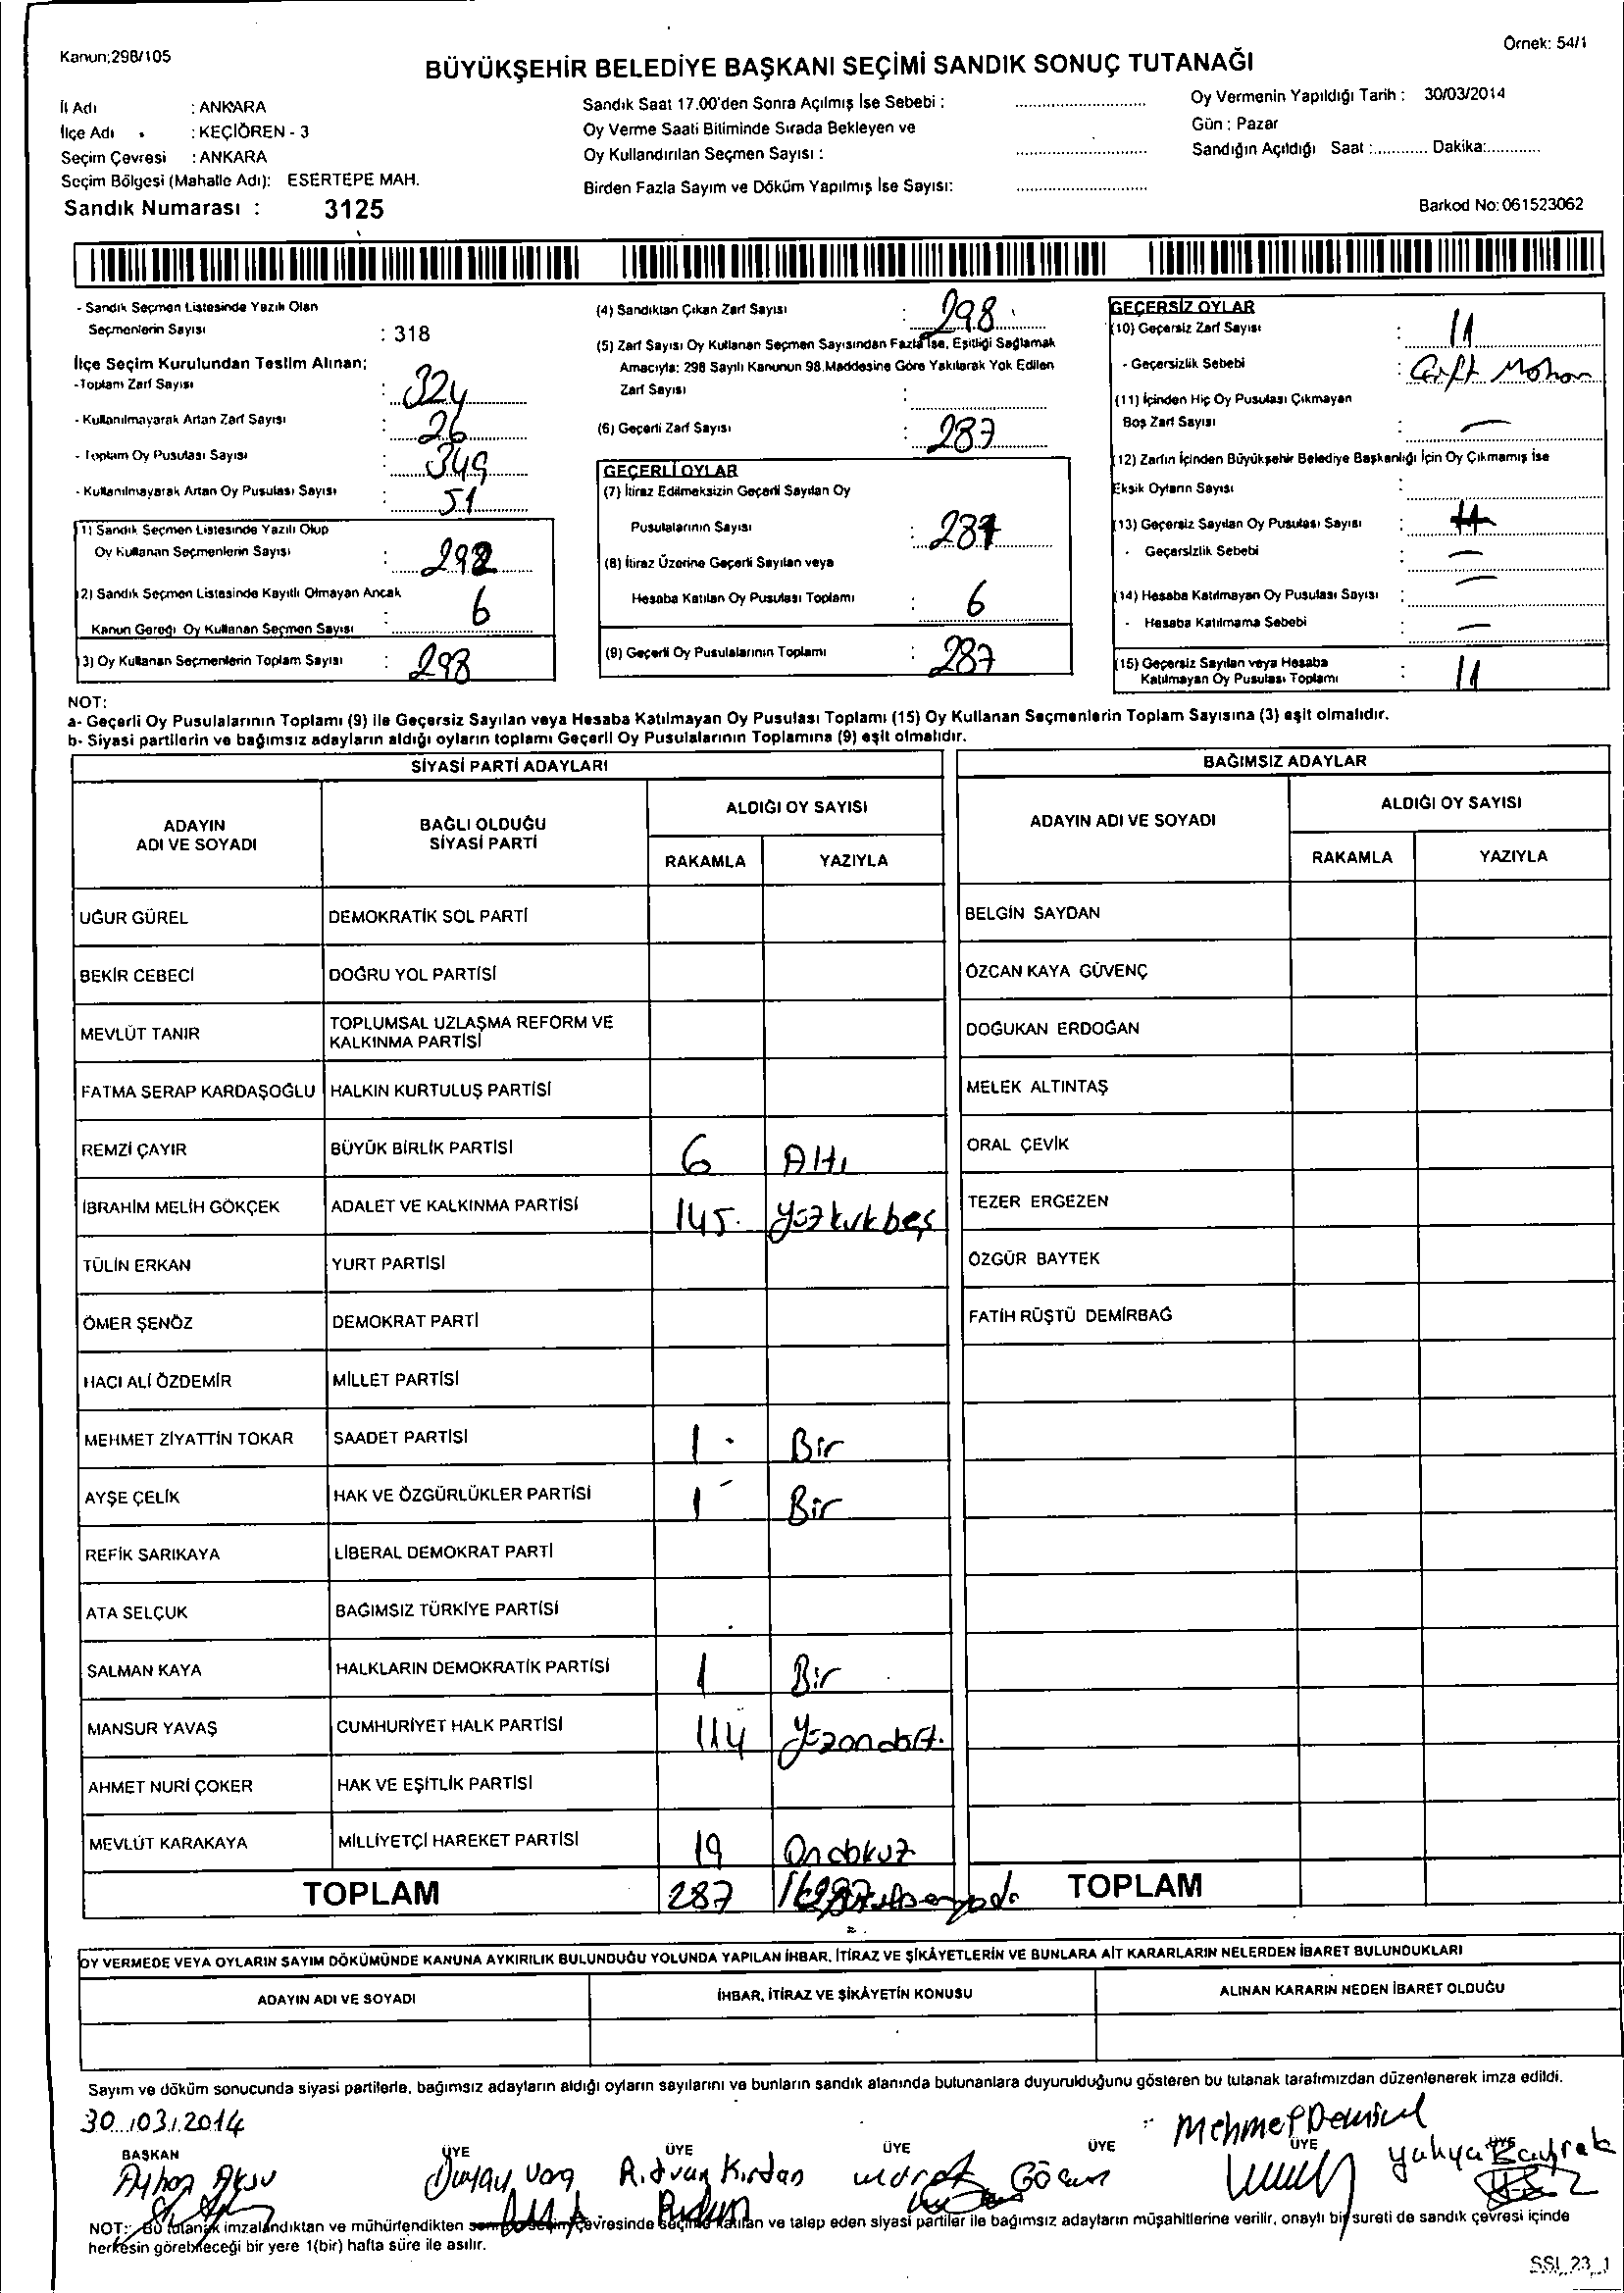 Kanun:298/105
Örnek: 54/1
BÜYÜKŞEHİR BELEDİYE BAŞKANI SEÇİMİ SANDIK SONUÇ TUTANAĞI
İl Adı : ANKARA
İlçe Adı : KEÇİÖREN - 3
Seçim Çevresi : ANKARA
Seçim Bölgesi (Mahalle Adı): ESERTEPE MAH.
Sandık Numarası : 3125
Sandık Saat 17.00'den Sonra Açılmış İse Sebebi :
Oy Verme Saati Bitiminde Sırada Bekleyen ve
Oy Kullandırılan Seçmen Sayısı :
Birden Fazla Sayım ve Döküm Yapılmış İse Sayısı:
Oy Vermenin Yapıldığı Tarih : 30/03/2014
Gün : Pazar
Sandığın Açıldığı Saat :............ Dakika:............
Barkod No:061523062
- Sandık Seçmen Listesinde Yazılı Olan
Seçmenlerin Sayısı : 318
İlçe Seçim Kurulundan Teslim Alınan;
-Toplam Zarf Sayısı : 324
- Kullanılmayarak Artan Zarf Sayısı : 26
- Toplam Oy Pusulası Sayısı : 349
- Kullanılmayarak Artan Oy Pusulası Sayısı : 51
(1) Sandık Seçmen Listesinde Yazılı Olup
Oy Kullanan Seçmenlerin Sayısı : 292
(2) Sandık Seçmen Listesinde Kayıtlı Olmayan Ancak
Kanun Gereği Oy Kullanan Seçmen Sayısı : 6
(3) Oy Kullanan Seçmenlerin Toplam Sayısı : 298
(4) Sandıktan Çıkan Zarf Sayısı : 298
(5) Zarf Sayısı Oy Kullanan Seçmen Sayısından Fazla İse, Eşitliği Sağlamak
Amacıyla: 298 Sayılı Kanunun 98.Maddesine Göre Yakılarak Yok Edilen
Zarf Sayısı :
(6) Geçerli Zarf Sayısı : 287
GEÇERLİ OYLAR
(7) İtiraz Edilmeksizin Geçerli Sayılan Oy
Pusulalarının Sayısı : 287
(8) İtiraz Üzerine Geçerli Sayılan veya
Hesaba Katılan Oy Pusulası Toplamı : 6
(9) Geçerli Oy Pusulalarının Toplamı : 287
GEÇERSİZ OYLAR
(10) Geçersiz Zarf Sayısı : 11
- Geçersizlik Sebebi : Çift Mühür
(11) İçinden Hiç Oy Pusulası Çıkmayan
Boş Zarf Sayısı : —
(12) Zarfın İçinden Büyükşehir Belediye Başkanlığı İçin Oy Çıkmamış İse
Eksik Oyların Sayısı :
(13) Geçersiz Sayılan Oy Pusulası Sayısı : 11
- Geçersizlik Sebebi : —
(14) Hesaba Katılmayan Oy Pusulası Sayısı : —
- Hesaba Katılmama Sebebi : —
(15) Geçersiz Sayılan veya Hesaba
Katılmayan Oy Pusulası Toplamı : 11
NOT:
a- Geçerli Oy Pusulalarının Toplamı (9) ile Geçersiz Sayılan veya Hesaba Katılmayan Oy Pusulası Toplamı (15) Oy Kullanan Seçmenlerin Toplam Sayısına (3) eşit olmalıdır.
b- Siyasi partilerin ve bağımsız adayların aldığı oyların toplamı Geçerli Oy Pusulalarının Toplamına (9) eşit olmalıdır.
SİYASİ PARTİ ADAYLARI
ADAYIN ADI VE SOYADI
BAĞLI OLDUĞU SİYASİ PARTİ
ALDIĞI OY SAYISI
RAKAMLA YAZIYLA
UĞUR GÜREL DEMOKRATİK SOL PARTİ
BEKİR CEBECİ DOĞRU YOL PARTİSİ
MEVLÜT TANIR TOPLUMSAL UZLAŞMA REFORM VE
KALKINMA PARTİSİ
FATMA SERAP KARDAŞOĞLU HALKIN KURTULUŞ PARTİSİ
REMZİ ÇAYIR BÜYÜK BİRLİK PARTİSİ 6 Altı
İBRAHİM MELİH GÖKÇEK ADALET VE KALKINMA PARTİSİ 145. yüzkırkbeş
TÜLİN ERKAN YURT PARTİSİ
ÖMER ŞENÖZ DEMOKRAT PARTİ
HACI ALİ ÖZDEMİR MİLLET PARTİSİ
MEHMET ZİYATTİN TOKAR SAADET PARTİSİ 1 Bir
AYŞE ÇELİK HAK VE ÖZGÜRLÜKLER PARTİSİ 1 Bir
REFİK SARIKAYA LİBERAL DEMOKRAT PARTİ
ATA SELÇUK BAĞIMSIZ TÜRKİYE PARTİSİ
SALMAN KAYA HALKLARIN DEMOKRATİK PARTİSİ 1 Bir
MANSUR YAVAŞ CUMHURİYET HALK PARTİSİ 114 yüzondört.
AHMET NURİ ÇOKER HAK VE EŞİTLİK PARTİSİ
MEVLÜT KARAKAYA MİLLİYETÇİ HAREKET PARTİSİ 19 Ondokuz
TOPLAM 287
BAĞIMSIZ ADAYLAR
ADAYIN ADI VE SOYADI
ALDIĞI OY SAYISI
RAKAMLA YAZIYLA
BELGİN SAYDAN
ÖZCAN KAYA GÜVENÇ
DOĞUKAN ERDOĞAN
MELEK ALTINTAŞ
ORAL ÇEVİK
TEZER ERGEZEN
ÖZGÜR BAYTEK
FATİH RÜŞTÜ DEMİRBAĞ
TOPLAM
OY VERMEDE VEYA OYLARIN SAYIM DÖKÜMÜNDE KANUNA AYKIRILIK BULUNDUĞU YOLUNDA YAPILAN İHBAR, İTİRAZ VE ŞİKÂYETLERİN VE BUNLARA AİT KARARLARIN NELERDEN İBARET BULUNDUKLARI
ADAYIN ADI VE SOYADI
İHBAR, İTİRAZ VE ŞİKÂYETİN KONUSU
ALINAN KARARIN NEDEN İBARET OLDUĞU
Sayım ve döküm sonucunda siyasi partilerle, bağımsız adayların aldığı oyların sayılarını ve bunların sandık alanında bulunanlara duyurulduğunu gösteren bu tutanak tarafımızdan düzenlenerek imza edildi.
30.03.2014
BAŞKAN ÜYE ÜYE ÜYE ÜYE ÜYE ÜYE
Rıdvan Kırdan
Mehmet
Yahya Bayrak
NOT: Bu tutanak imzalandıktan ve mühürlendikten sonra seçim çevresinde seçime katılan ve talep eden siyasi partiler ile bağımsız adayların müşahitlerine verilir, onaylı bir sureti de sandık çevresi içinde
herkesin görebileceği bir yere 1(bir) hafta süre ile asılır.
SSI_23_1